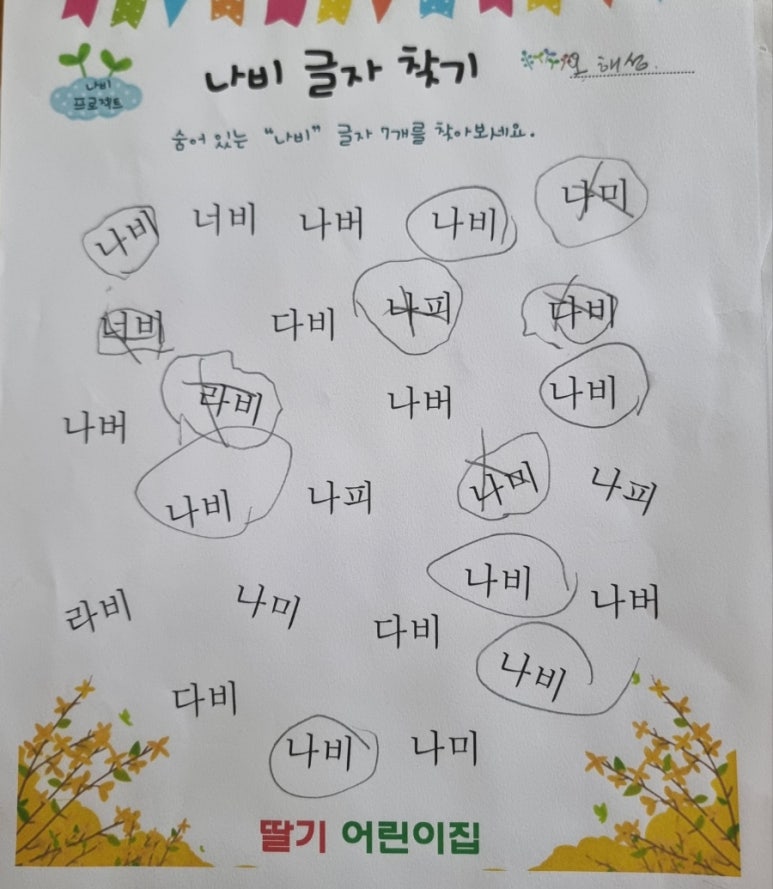 나비
프로젝트
나비 글자 찾기
오 해성.
숨어 있는 "나비" 글자 7개를 찾아보세요.
나비 너비 나버 나비 나미
너비 다비 나피 다비
나버 라비 나버 나비
나비 나피 나미 나피
라비 나미 다비 나비 나버
다비 나비
나비 나미
딸기 어린이집